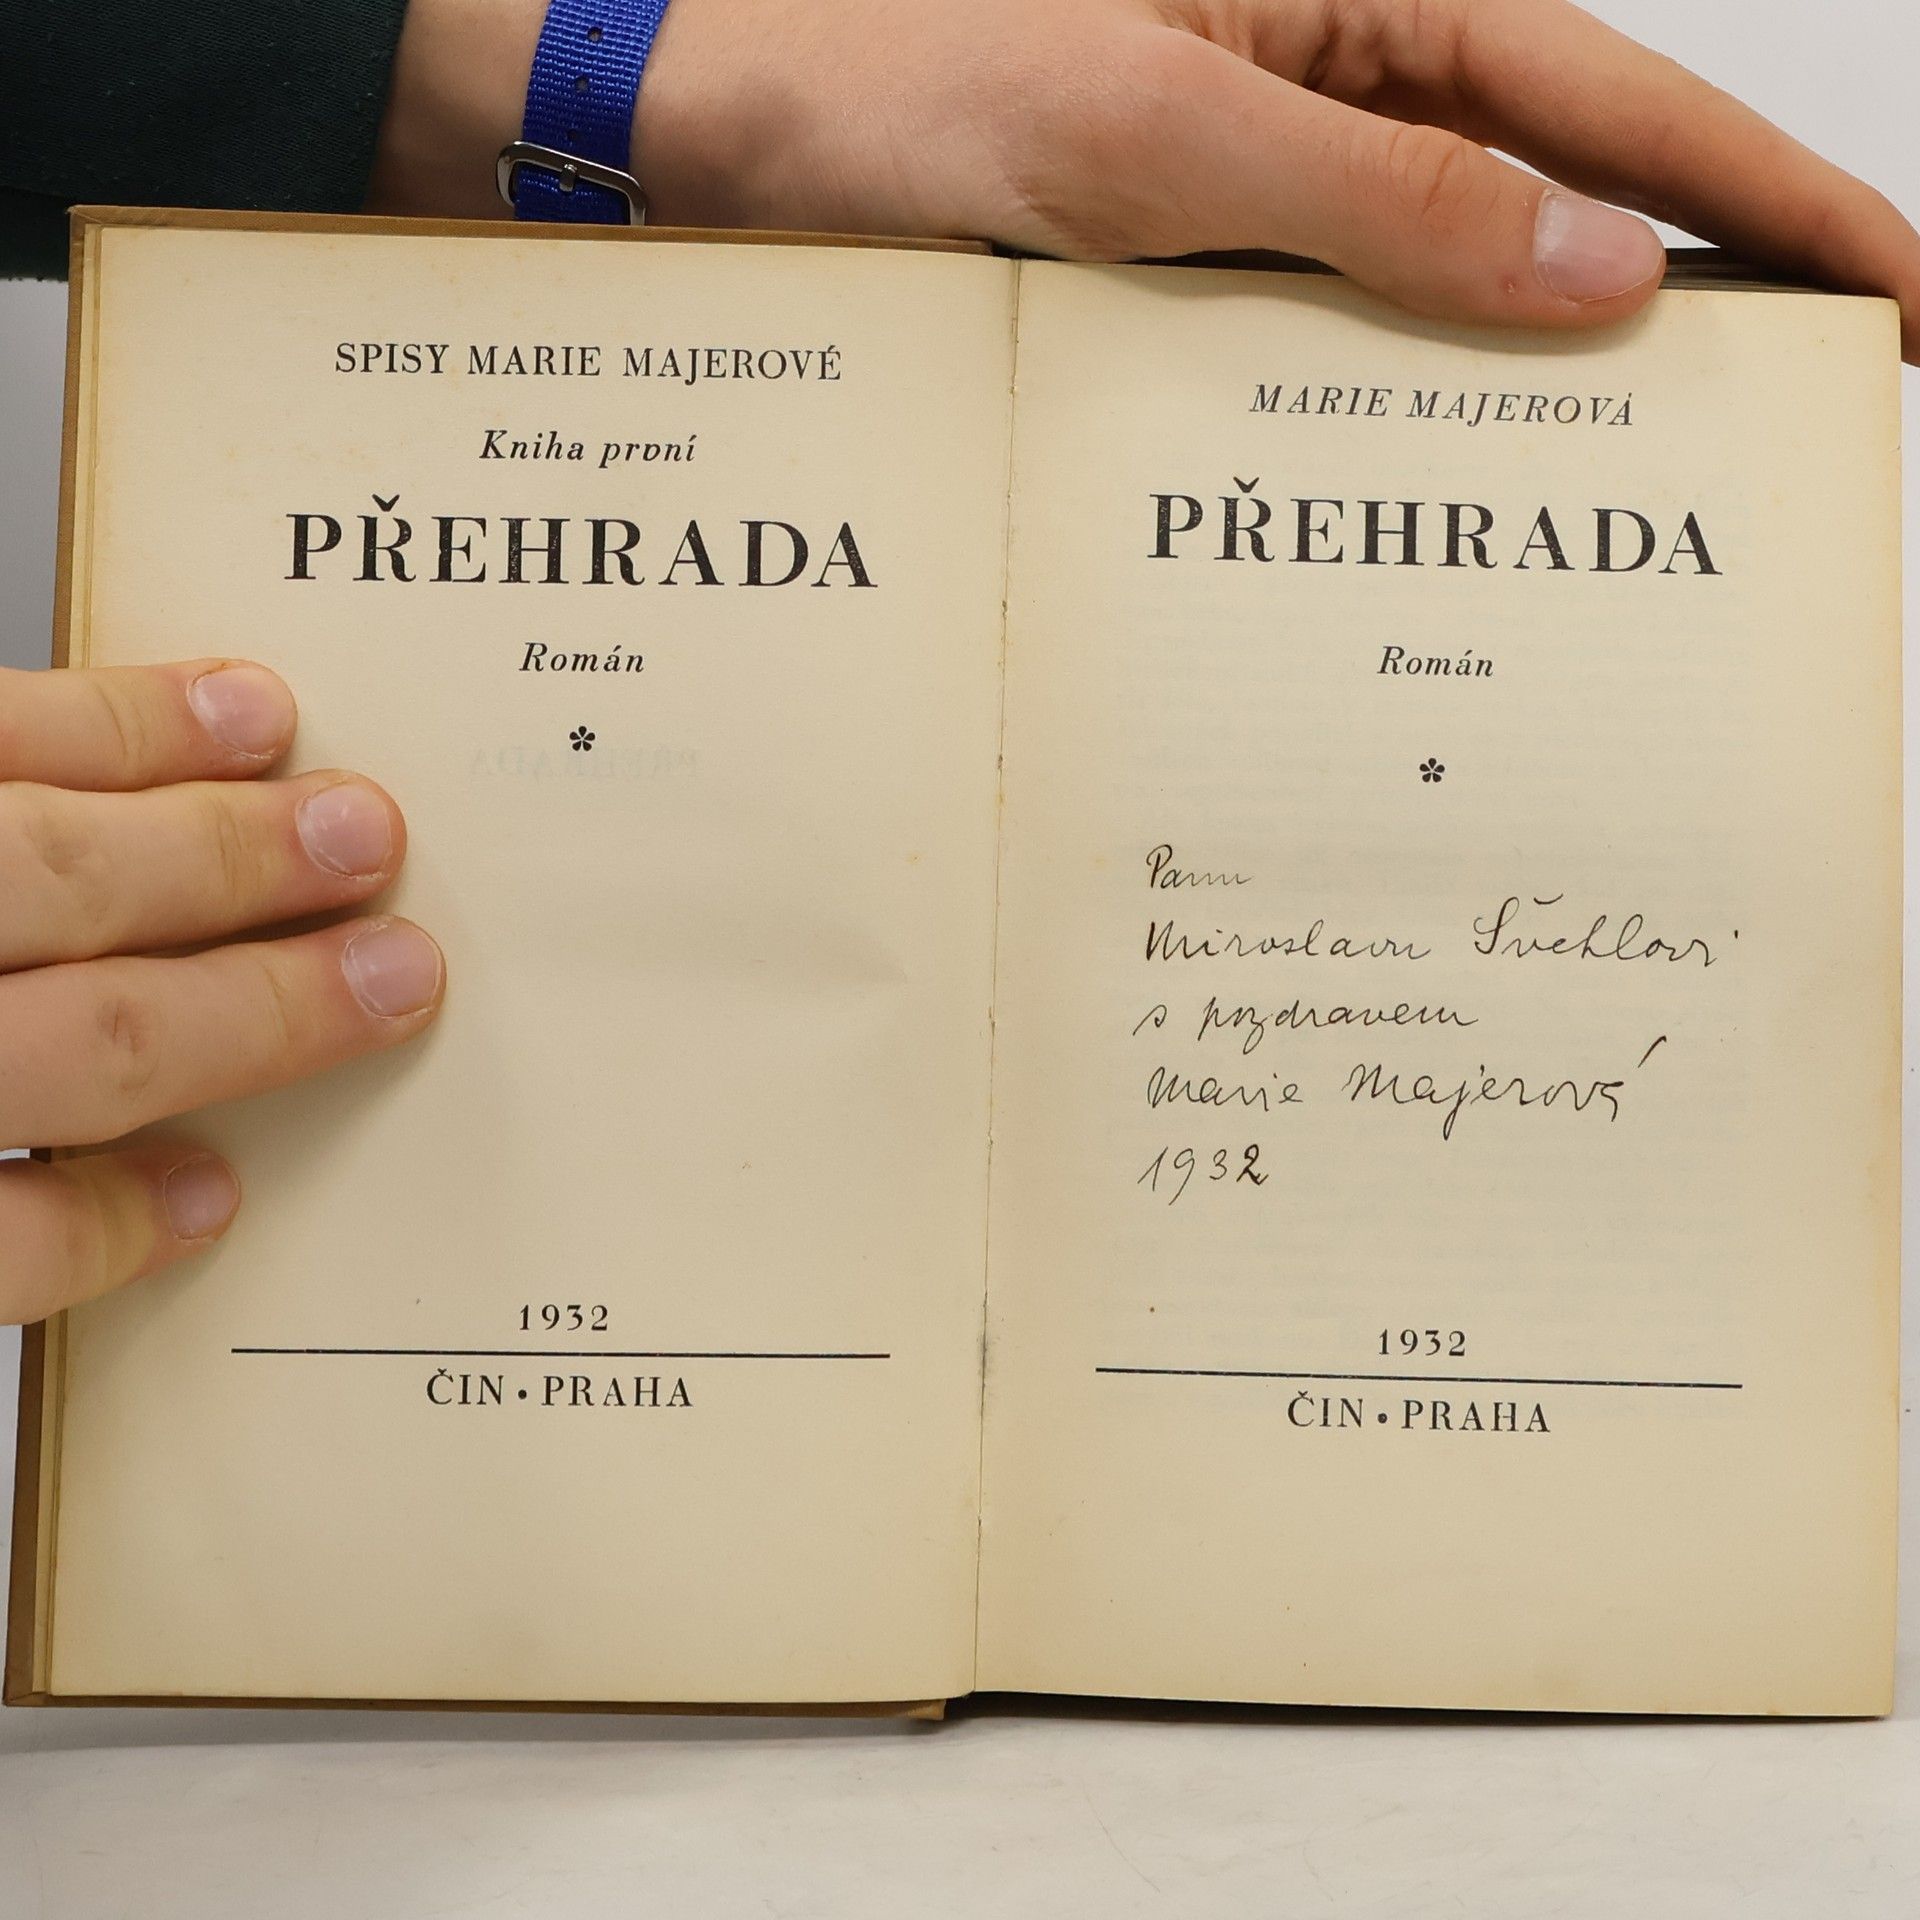 SPISY MARIE MAJEROVÉ
Kniha první
PŘEHRADA
Román
*
1932
ČIN • PRAHA
MARIE MAJEROVÁ
PŘEHRADA
Román
*
Panu
Miroslavu Švehlovi
s pozdravem
Marie Majerová
1932
1932
ČIN • PRAHA